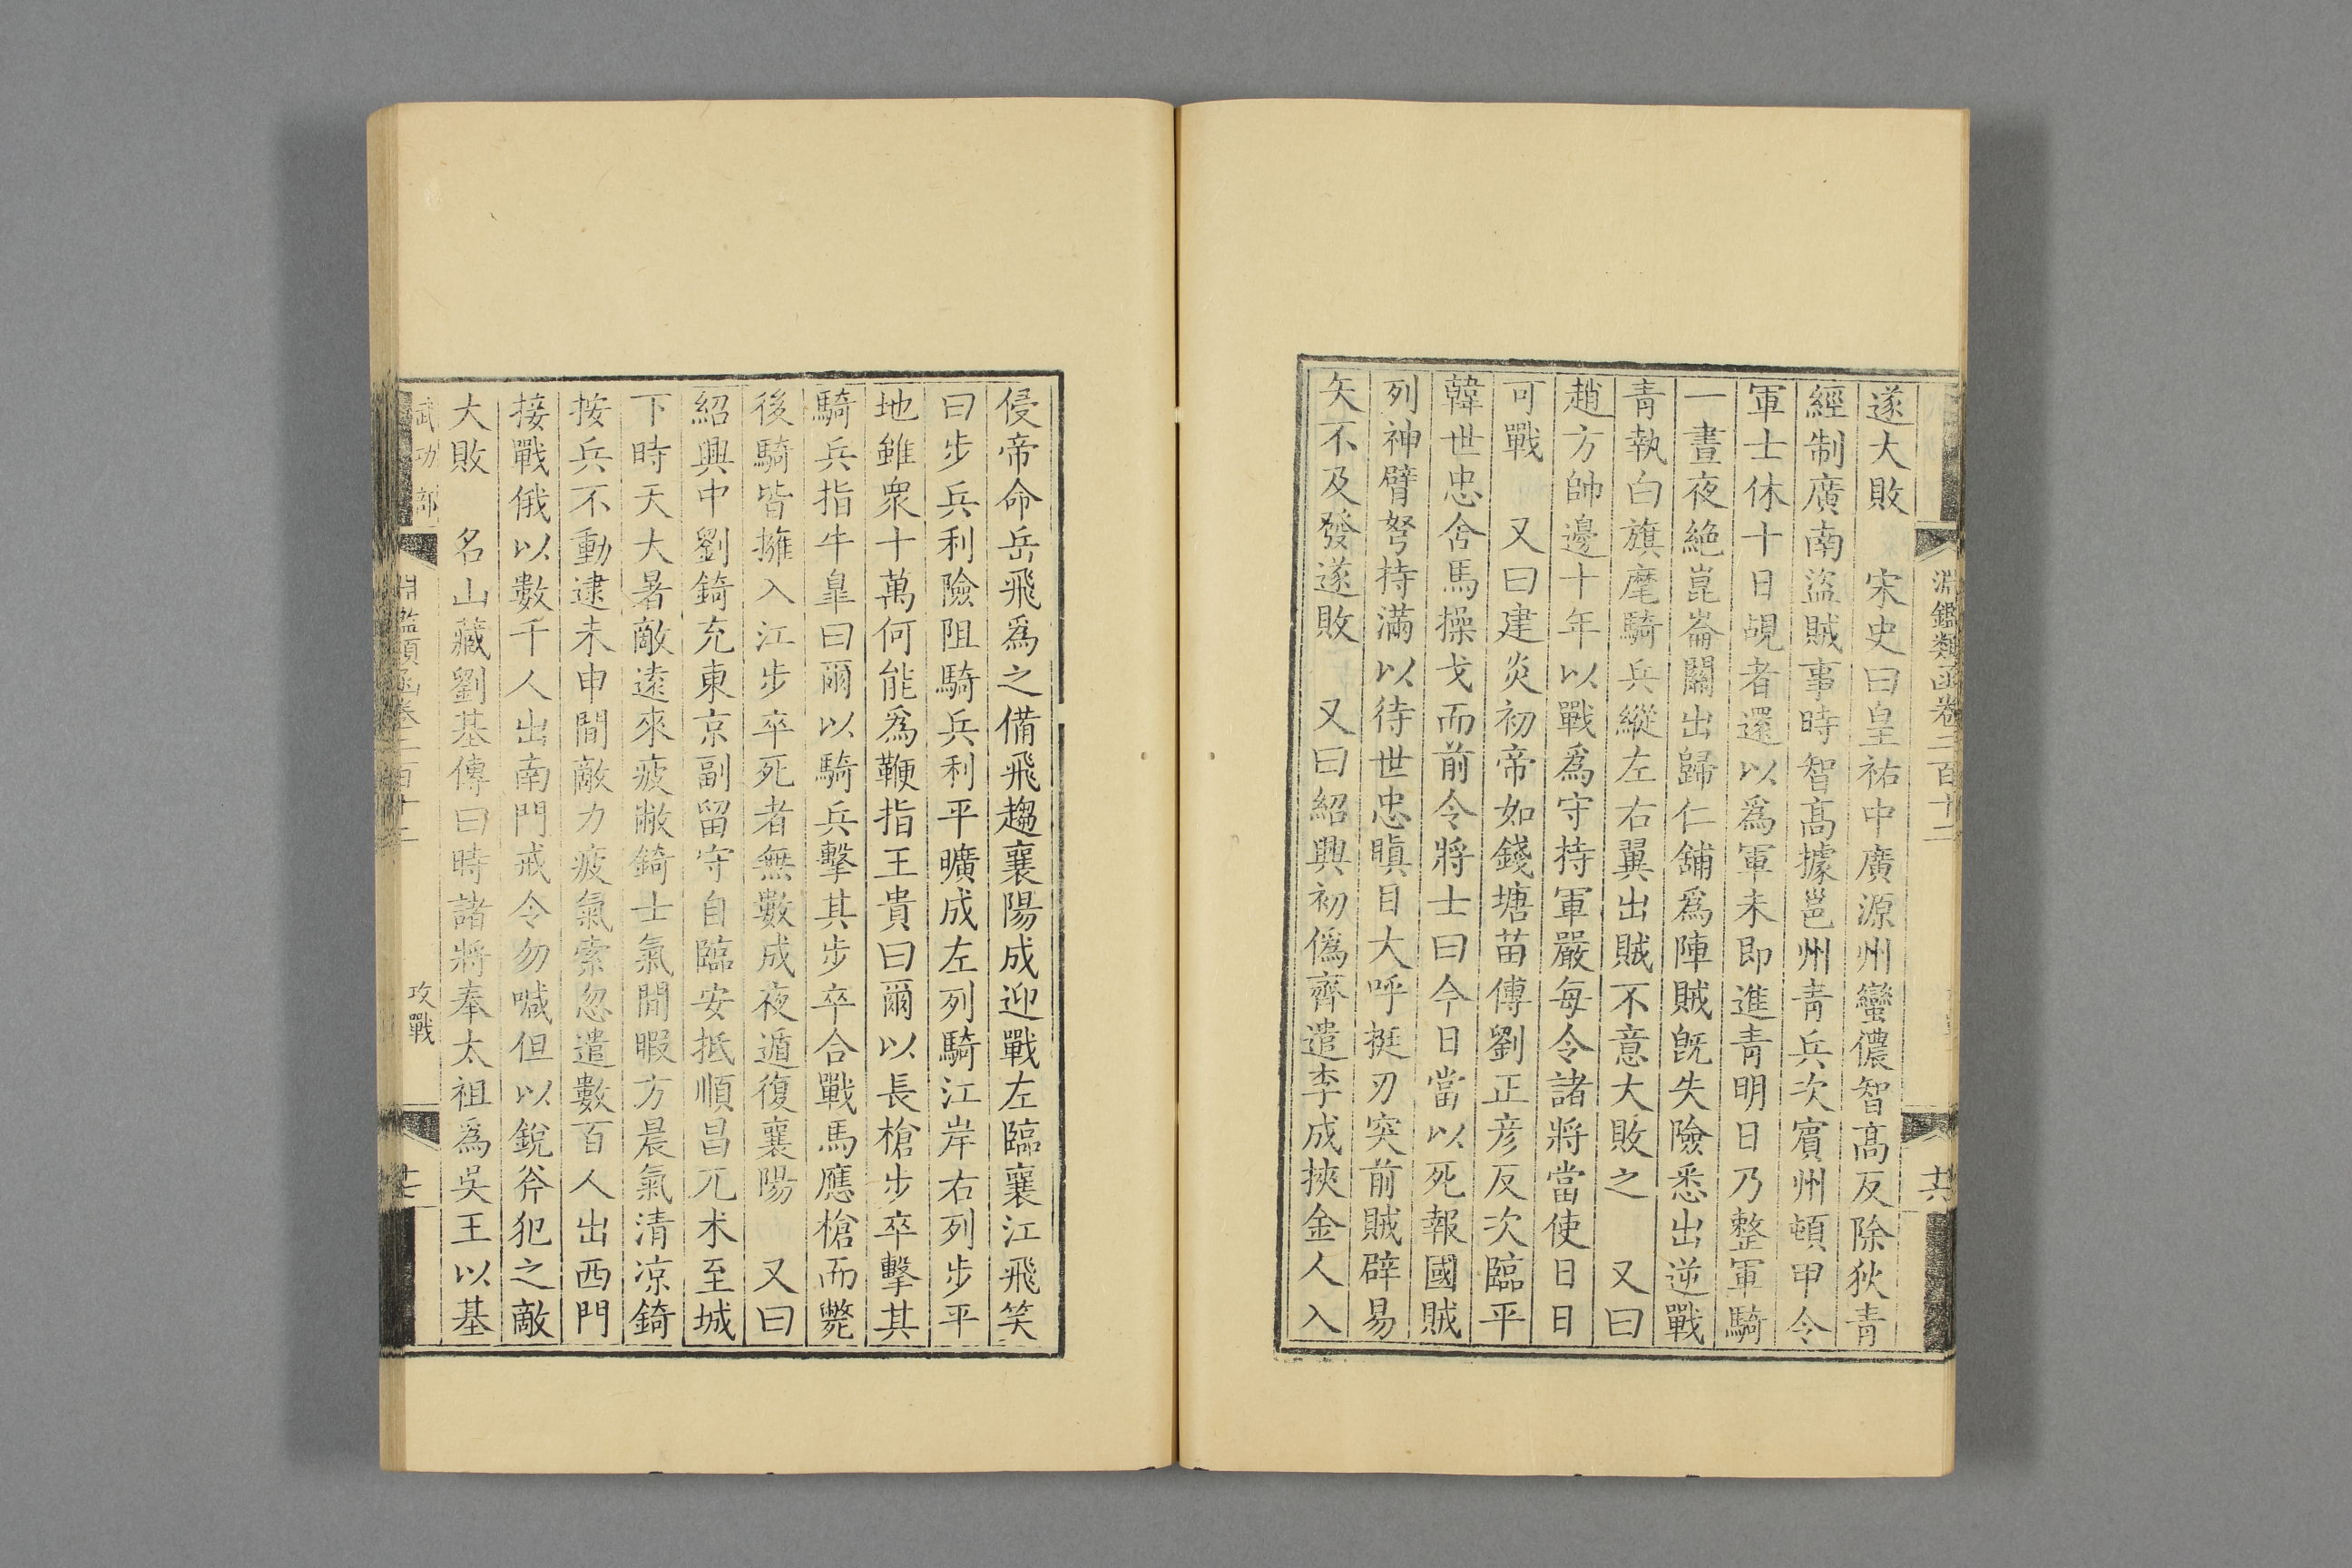 淵鑑類函卷二百十二
廿六
遂大敗　宋史曰皇祐中廣源州蠻儂智高反除狄青
經制廣南盜賊事時智高據邕州青兵次賓州頓甲令
軍士休十日覘者還以爲軍未即進青明日乃整軍騎
一晝夜絶崑崙關出歸仁舖爲陣賊旣失險悉出逆戰
青執白旗麾騎兵縱左右翼出賊不意大敗之　又曰
趙方帥邊十年以戰爲守持軍嚴每令諸將當使日日
可戰　又曰建炎初帝如錢塘苗傅劉正彦反次臨平
韓世忠舍馬操戈而前令將士曰今日當以死報國賊
列神臂弩持滿以待世忠瞋目大呼挺刃突前賊辟易
矢不及發遂敗　又曰紹興初僞齊遣李成挾金人入
侵帝命岳飛爲之備飛趨襄陽成迎戰左臨襄江飛笑
曰步兵利險阻騎兵利平曠成左列騎江岸右列步平
地雖衆十萬何能爲鞭指王貴曰爾以長槍步卒擊其
騎兵指牛臯曰爾以騎兵擊其步卒合戰馬應槍而斃
後騎皆擁入江步卒死者無數成夜遁復襄陽　又曰
紹興中劉錡充東京副留守自臨安抵順昌兀朮至城
下時天大暑敵遠來疲敝錡士氣閒暇方晨氣清凉錡
按兵不動逮未申間敵力疲氣索忽遣數百人出西門
接戰俄以數千人出南門戒令勿喊但以銳斧犯之敵
大敗　名山藏劉基傳曰時諸將奉太祖爲吳王以基
武功部
淵鑑類函卷二百十二
攻戰